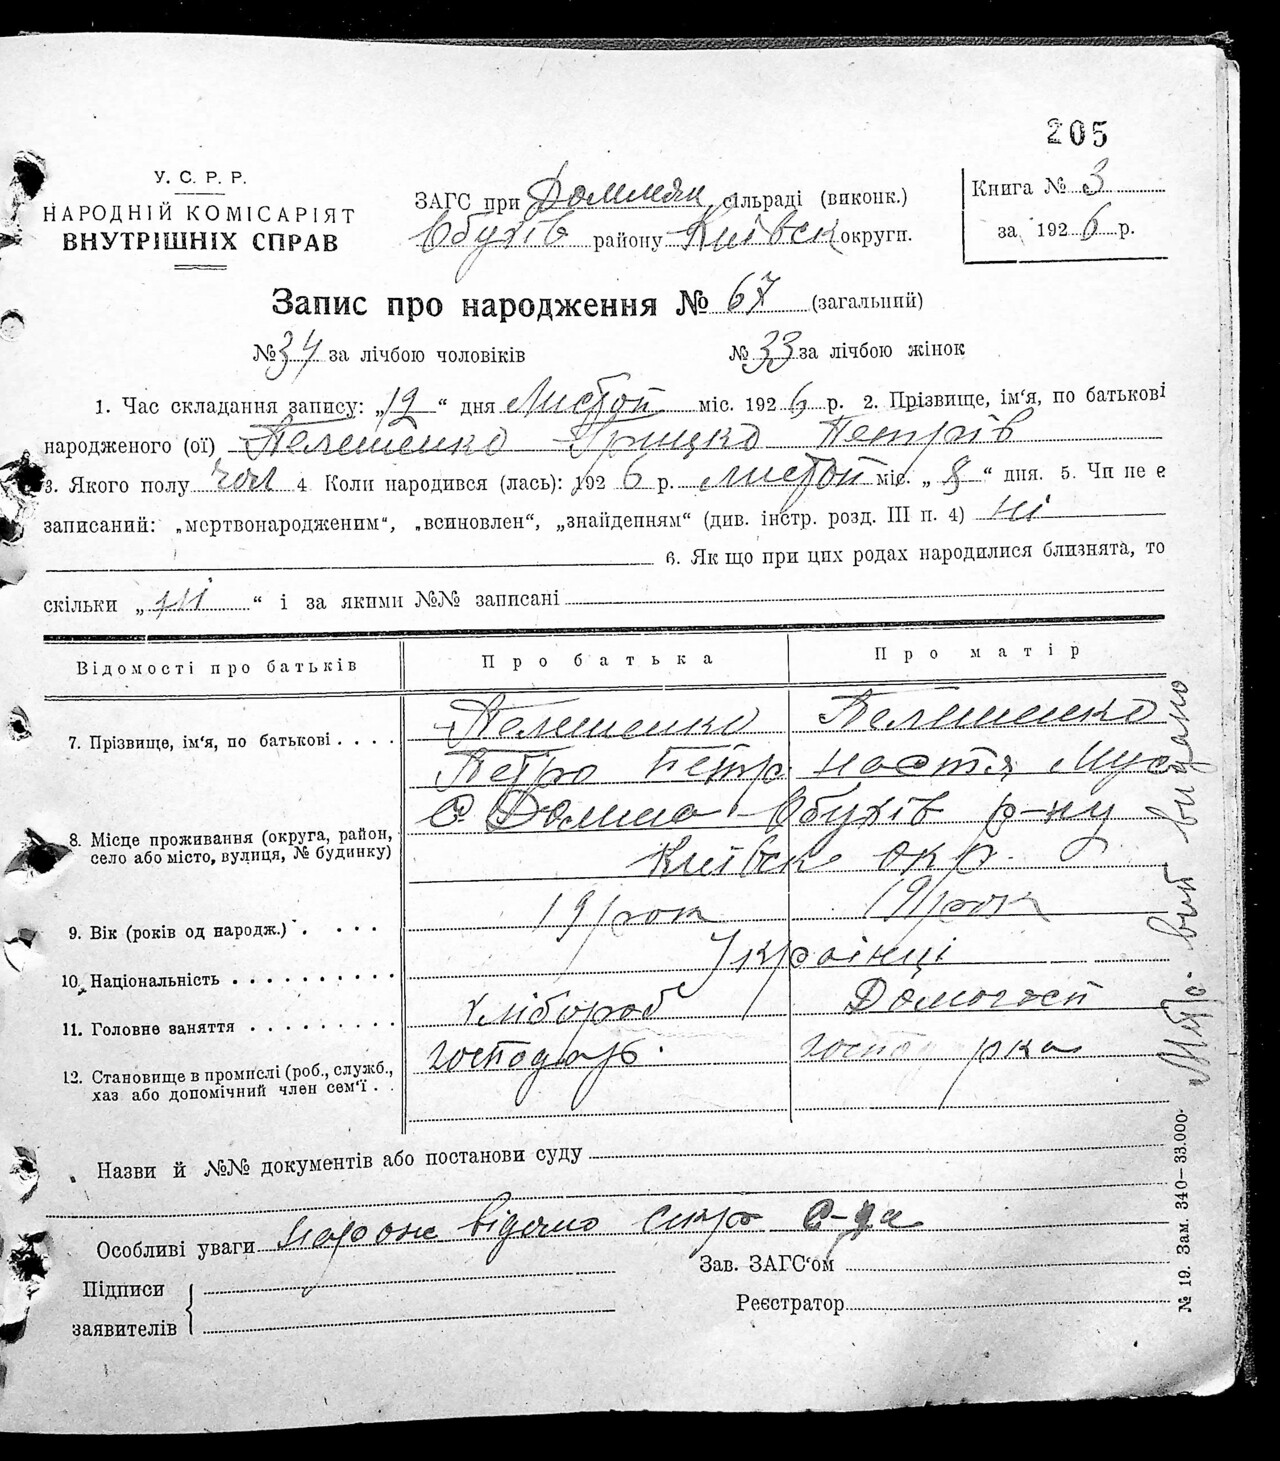 205
У. С. Р. Р.
НАРОДНІЙ КОМІСАРІЯТ
ВНУТРІШНІХ СПРАВ
ЗАГС при Долинян сільраді (виконк.)
Обухів району Київск округи.
Книга № 3
за 1926 р.
Запис про народження № 67 (загальний)
№ 34 за лічбою чоловіків № 33 за лічбою жінок
1. Час складання запису: „12“ дня Листоп міс. 1926 р. 2. Прізвище, ім‘я, по батькові
народженого (ої) Пелешенко Грицко Петрів
3. Якого полу чол 4 Коли народився (лась): 1926 р. листоп міс. „8“ дня. 5. Чи не є
записаний: „мертвонародженим“, „всиновлен“, „знайденням“ (див. інстр. розд. III п. 4) ні
6. Як що при цих родах народилися близнята, то
скільки „ні“ і за якими №№ записані
Відомості про батьків Про батька Про матір
7. Прізвище, ім‘я, по батькові . . . .
Пелешенко Пелешенко
Петро Петр. Настя Мус
8. Місце проживання (округа, район,
село або місто, вулиця, № будинку)
с Долина Обухів р-ну
Київск окр.
9. Вік (років од народж.) . . . . 19 рок 19 рок
10. Національність . . . . . . . . . . Українці
11. Головне заняття . . . . . . . . . Хлібороб Домогосп
12. Становище в промислі (роб., служб.,
хаз або допомічний член сем‘ї . .
господарь. госпо рка
Назви й №№ документів або постанови суду
Особливі уваги нарож відомо
Підписи
заявителів
Зав. ЗАГС‘ом
Реєстратор
№ 19. Зам. 340—33.000.
вит видано